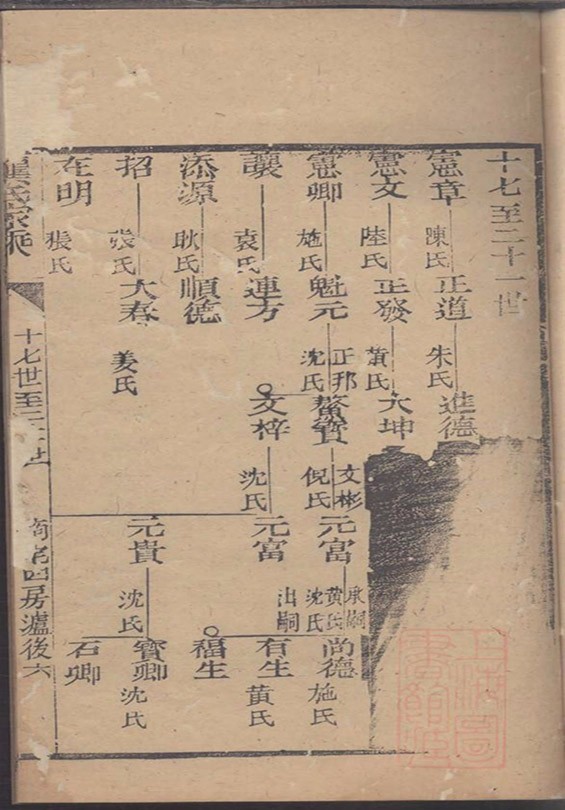 十七至二十一世
憲章 陳氏 正道 朱氏 進德
憲文 陸氏 正發 黄氏 大坤
憲卿 施氏 魁元 正邦 沈氏 鰲寶 文彬 倪氏 元富 承嗣 黄氏 沈氏 尚德 施氏
讓 袁氏 連方 文梓 沈氏 元富 出嗣 有生 黄氏
添源 耿氏 順德 福生
招 張氏 大春 姜氏 元貴 沈氏 寶卿 沈氏
在明 張氏 石卿
家乘
十七世至二十一世
四房瀘後六